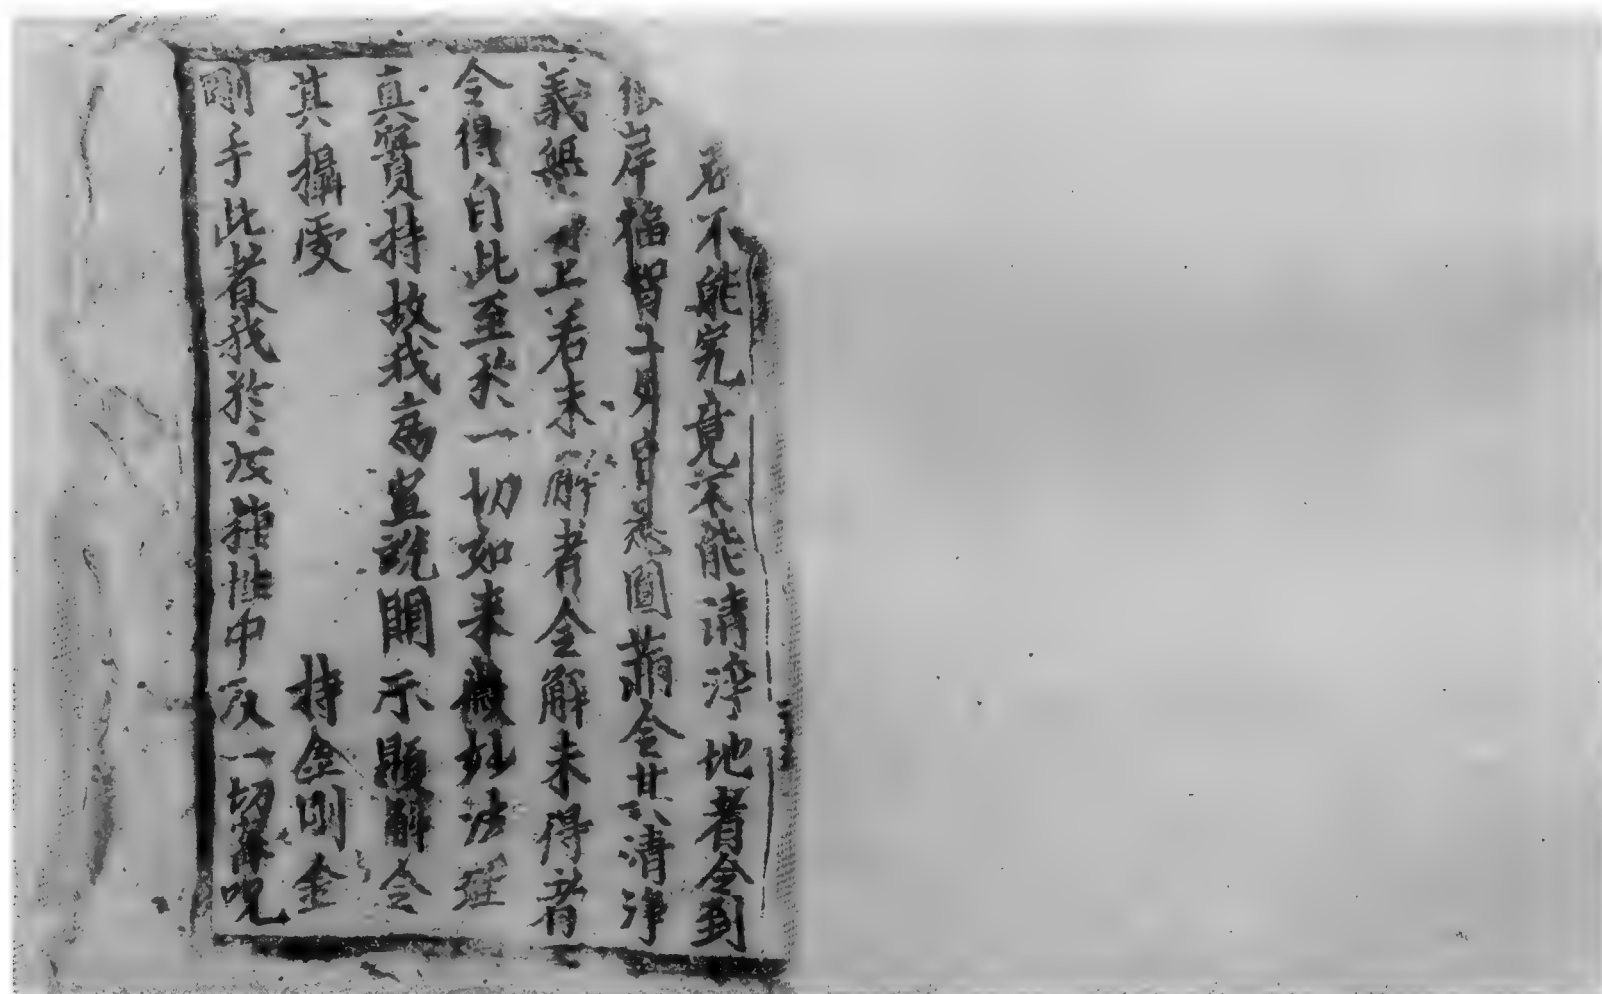 若不能究竟不能清淨地者令到
彼岸福智二身自忍圓滿令其清淨
義無 上若未解者令解未得者
令得自此至於一切如来微妙法正
真實持故我高宣説開示顯解令
其攝受 持金剛金
剛手此者我於彼種性中及一切密呪